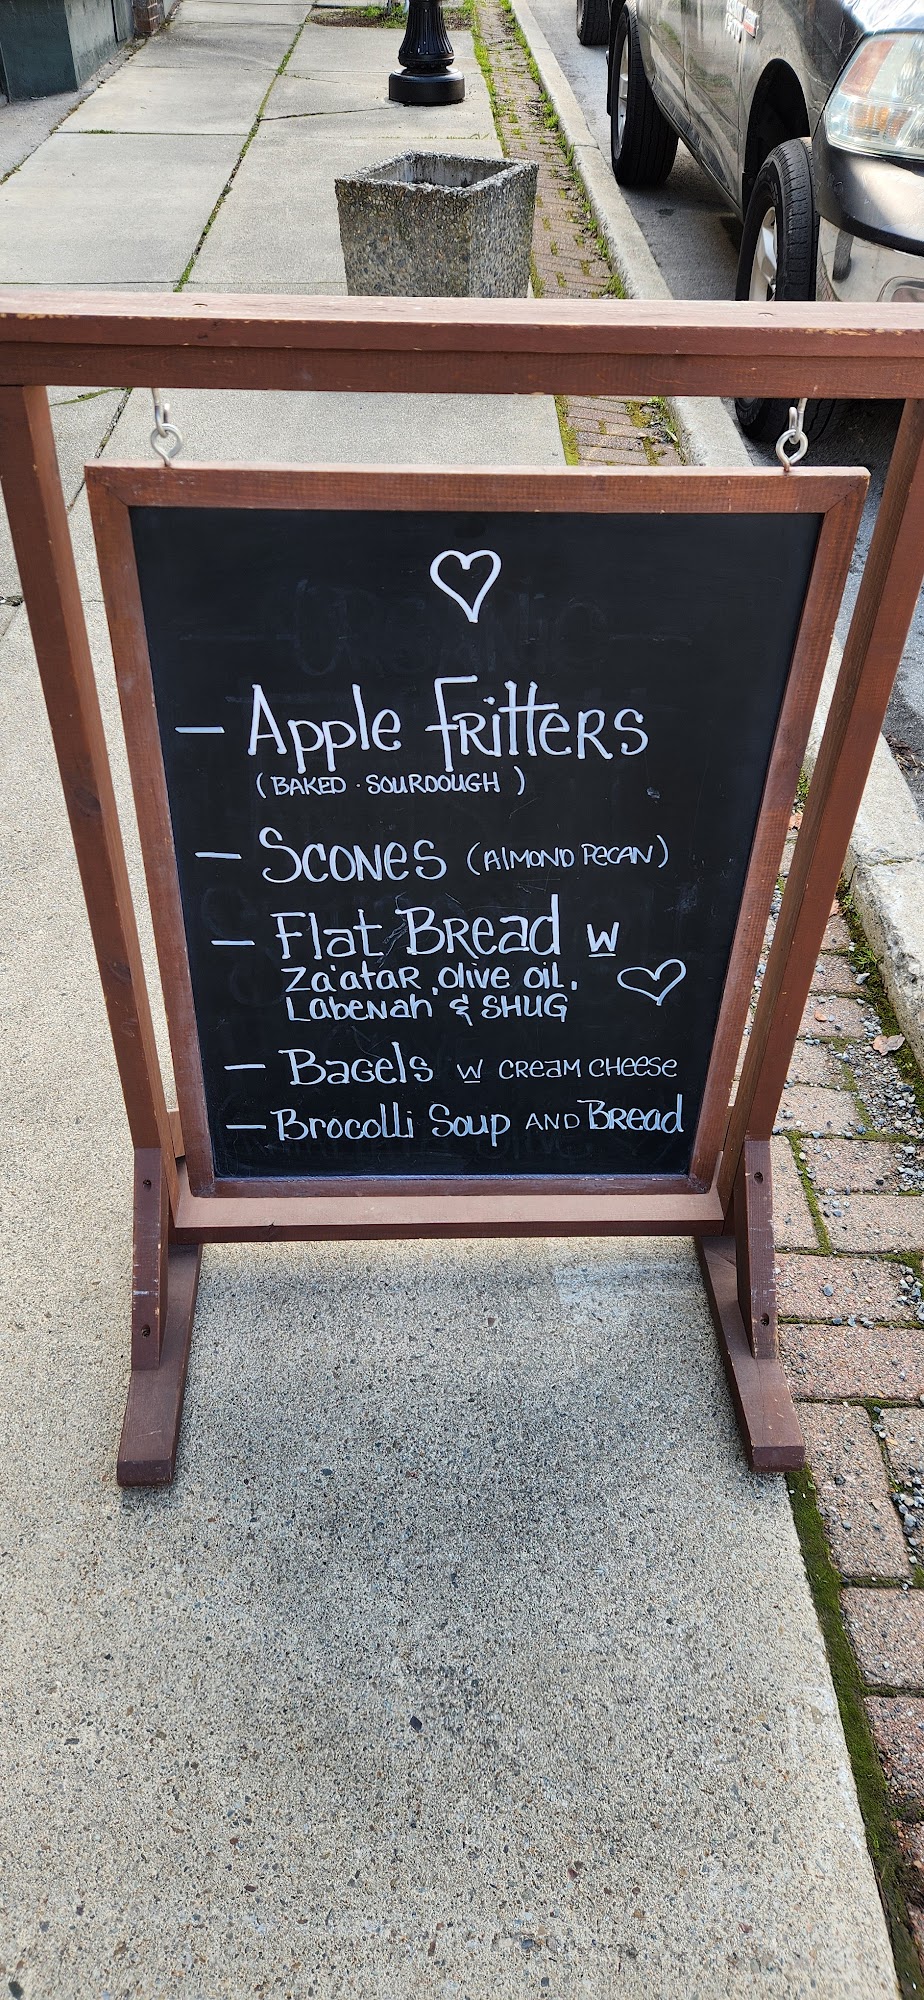 — Apple Fritters
(BAKED · SOURDOUGH )
— Scones (AlMOND PecAN)
— Flat Bread w
Za'atar, olive oil,
Labenah & SHUG
— Bagels w cream cheese
— Brocolli Soup AND Bread